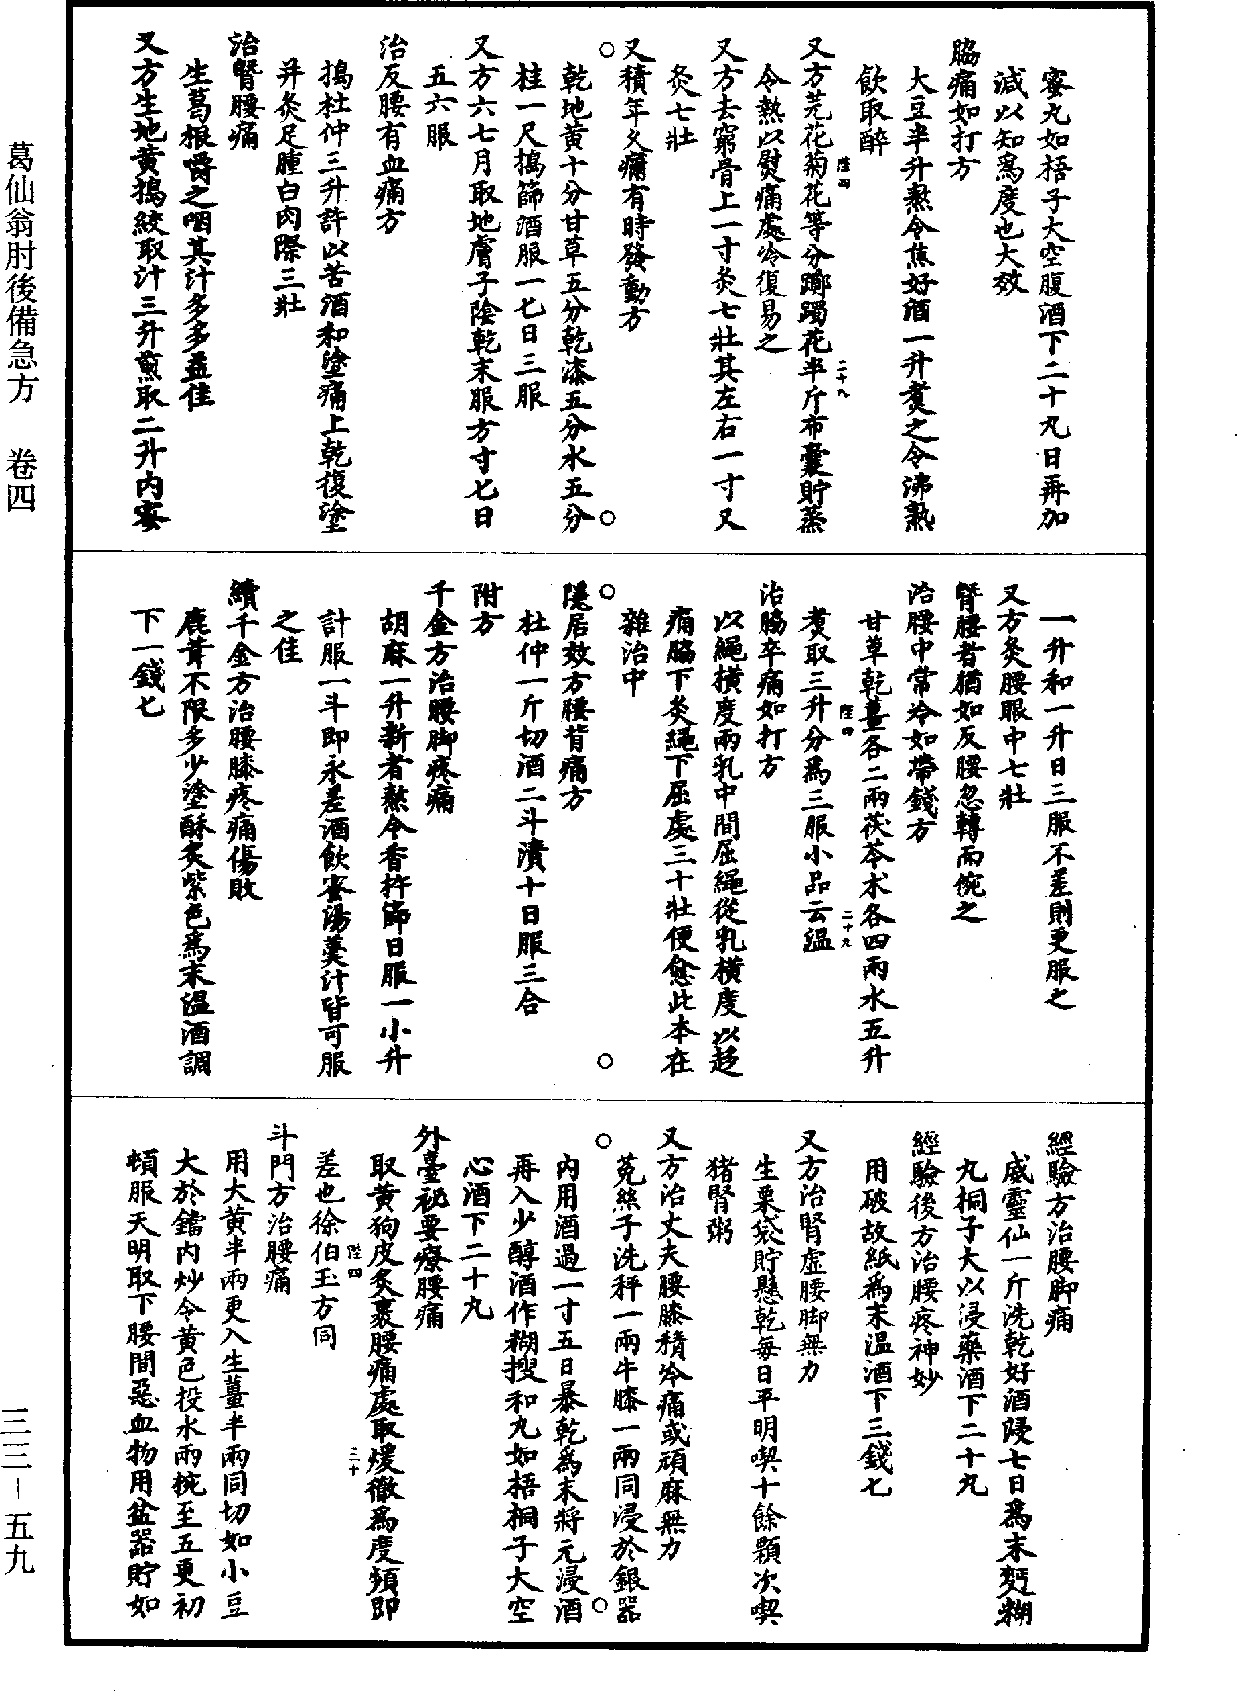 蜜丸如梧子大空腹酒下二十九日再加
減以知爲度也大效
脇痛如打方
大豆半升熬令焦好酒一升煑之令沸熟
飲取醉
又方芫花菊花等分躑躅花半斤布囊貯蒸
令熱以熨痛處冷復易之
又方去窮骨上一寸灸七壯其左右一寸又
灸七壯
又積年久痛有時發動方
乾地黃十分甘草五分乾漆五分水五分
桂一尺搗篩酒服一七日三服
又方六七月取地膚子陰乾末服方寸七日
五六服
治反腰有血痛方
搗杜仲三升許以苦酒和塗痛上乾復塗
并灸足踵白肉際三壯
治腎腰痛
生葛根嚼之咽其汁多多益佳
又方生地黃搗絞取汁三升煎取二升內蜜
一升和一升日三服不差則更服之
又方灸腰眼中七壯
腎腰者猶如反腰忽轉而惋之
治腰中常冷如帶錢方
甘草乾薑各二兩茯苓朮各四兩水五升
煑取三升分爲三服小品云溫
治脇卒痛如打方
以繩橫度兩乳中間屈繩從乳橫度以趍
痛脇下灸繩下屈處三十壯便愈此本在
雜治中
隱居效方腰背痛方
杜仲一斤切酒二斗漬十日服三合
附方
千金方治腰脚疼痛
胡麻一升新者熬令香杵篩日服一小升
計服一斗即永差酒飲蜜湯羮汁皆可服
之佳
續千金方治腰膝疼痛傷敗
鹿茸不限多少塗酥炙紫色爲末溫酒調
下一錢七
經驗方治腰脚痛
威靈仙一斤洗乾好酒浸七日爲末麪糊
丸桐子大以浸藥酒下二十丸
經驗後方治腰疼神妙
用破故紙爲末溫酒下三錢七
又方治腎虛腰脚無力
生栗袋貯懸乾每日平明喫十餘顆次喫
猪腎粥
又方治丈夫腰膝積冷痛或頑麻無力
菟絲子洗秤一兩牛膝一兩同浸於銀器
內用酒過一寸五日暴乾爲末將元浸酒
再入少醇酒作糊搜和丸如梧桐子大空
心酒下二十丸
外臺祕要療腰痛
取黃狗皮炙裹腰痛處取煖徹爲度頻即
差也徐伯玉方同
斗門方治腰痛
用大黃半兩更入生薑半兩同切如小豆
大於鐺內炒令黃色投水兩椀至五更初
頓服天明取下腰間惡血物用盆器貯如
陸四
二十九
陸四
二十九
陸四
三十
葛仙翁肘後備急方 卷四
三三－五九